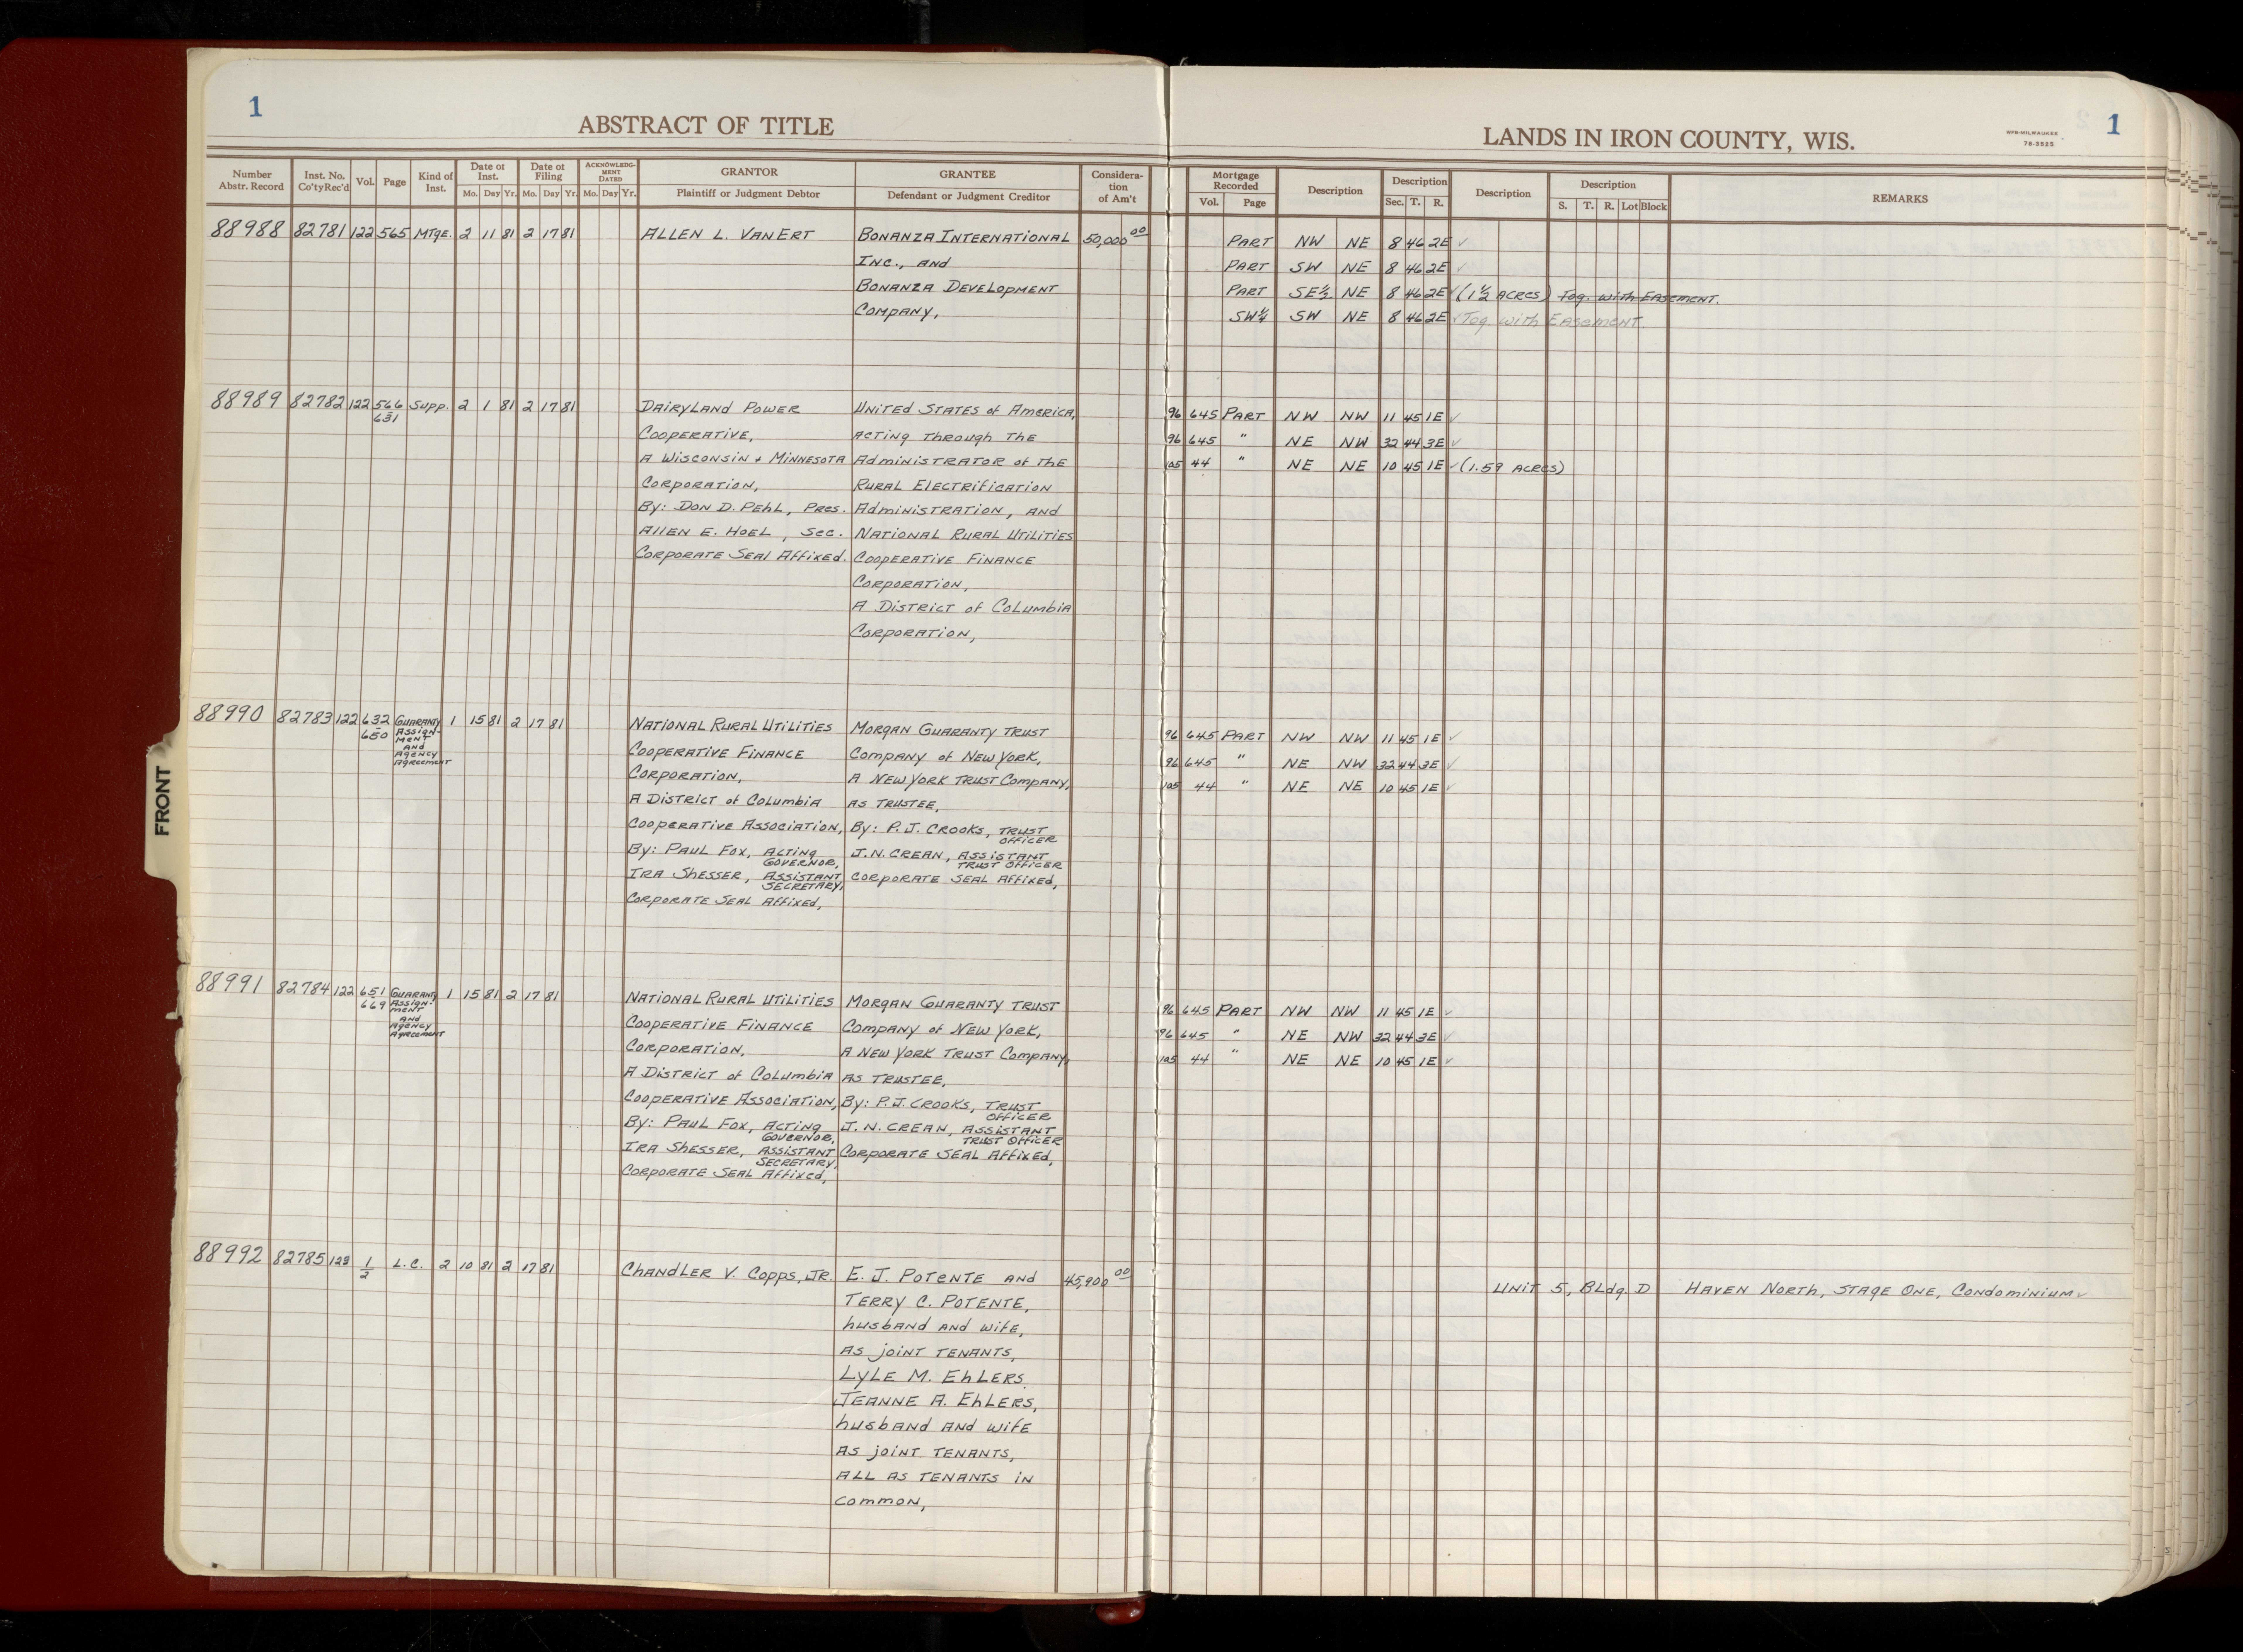 1
ABSTRACT OF TITLE
Number Abstr. Record | Inst. No. Co'ty Rec'd | Vol. | Page | Kind of Inst. | Date of Inst. Mo. Day Yr. | Date of Filing Mo. Day Yr. | ACKNOWLEDGMENT DATED Mo. Day Yr. | GRANTOR Plaintiff or Judgment Debtor | GRANTEE Defendant or Judgment Creditor | Consideration of Am't
88988 82781 122 565 MTGE. 2 11 81 2 17 81 ALLEN L. VANERT BONANZA INTERNATIONAL 50,000 00
INC., AND
BONANZA DEVELOPMENT
COMPANY,
88989 82782 122 566 631 SUPP. 2 1 81 2 17 81 DAIRYLAND POWER UNITED STATES of AMERICA,
COOPERATIVE, ACTING THROUGH THE
A WISCONSIN + MINNESOTA ADMINISTRATOR of THE
CORPORATION, RURAL ELECTRIFICATION
By: DON D. PEHL, PRES. ADMINISTRATION, AND
ALLEN E. HOEL, SEC. NATIONAL RURAL UTILITIES
CORPORATE SEAL AFFIXED. COOPERATIVE FINANCE
CORPORATION,
A DISTRICT of COLUMBIA
CORPORATION,
88990 82783 122 632 650 GUARANTY ASSIGN-MENT AND AGENCY AGREEMENT 1 15 81 2 17 81 NATIONAL RURAL UTILITIES MORGAN GUARANTY TRUST
COOPERATIVE FINANCE COMPANY of NEW YORK,
CORPORATION, A NEW YORK TRUST COMPANY,
A DISTRICT of COLUMBIA AS TRUSTEE,
COOPERATIVE ASSOCIATION, By: P.J. CROOKS, TRUST OFFICER
By: PAUL FOX, ACTING GOVERNOR, J.N. CREAN, ASSISTANT TRUST OFFICER
IRA SHESSER, ASSISTANT SECRETARY, CORPORATE SEAL AFFIXED,
CORPORATE SEAL AFFIXED,
88991 82784 122 651 669 GUARANTY ASSIGN-MENT AND AGENCY AGREEMENT 1 15 81 2 17 81 NATIONAL RURAL UTILITIES MORGAN GUARANTY TRUST
COOPERATIVE FINANCE COMPANY of NEW YORK,
CORPORATION, A NEW YORK TRUST COMPANY,
A DISTRICT of COLUMBIA AS TRUSTEE,
COOPERATIVE ASSOCIATION, By: P.J. CROOKS, TRUST OFFICER
By: PAUL FOX, ACTING GOVERNOR, J.N. CREAN, ASSISTANT TRUST OFFICER
IRA SHESSER, ASSISTANT SECRETARY, CORPORATE SEAL AFFIXED,
CORPORATE SEAL AFFIXED,
88992 82785 123 1 2 L.C. 2 10 81 2 17 81 CHANDLER V. COPPS, JR. E. J. POTENTE AND 45,900 00
TERRY C. POTENTE,
husband AND wife,
AS joint TENANTS,
LYLE M. EHLERS
JEANNE A. EHLERS,
husband AND wife
AS joint TENANTS,
ALL AS TENANTS in
common,
FRONT
LANDS IN IRON COUNTY, WIS.
WPB-MILWAUKEE
78-3525
1
Mortgage Recorded Vol. Page | Description | Description Sec. T. R. | Description | Description S. T. R. Lot Block | REMARKS
PART NW NE 8 46 2E ✓
PART SW NE 8 46 2E ✓
PART SE½ NE 8 46 2E ✓ (1½ ACRES) Tog. with EASEMENT.
SW¼ SW NE 8 46 2E ✓ Tog. with EASEMENT.
96 645 PART NW NW 11 45 1E ✓
96 645 " NE NW 32 44 3E ✓
105 44 " NE NE 10 45 1E ✓ (1.59 ACRES)
96 645 PART NW NW 11 45 1E ✓
96 645 " NE NW 32 44 3E ✓
105 44 " NE NE 10 45 1E ✓
96 645 PART NW NW 11 45 1E ✓
96 645 " NE NW 32 44 3E ✓
105 44 " NE NE 10 45 1E ✓
UNIT 5, BLdg. D HAVEN NORTH, STAGE ONE, CONDOMINIUM ✓